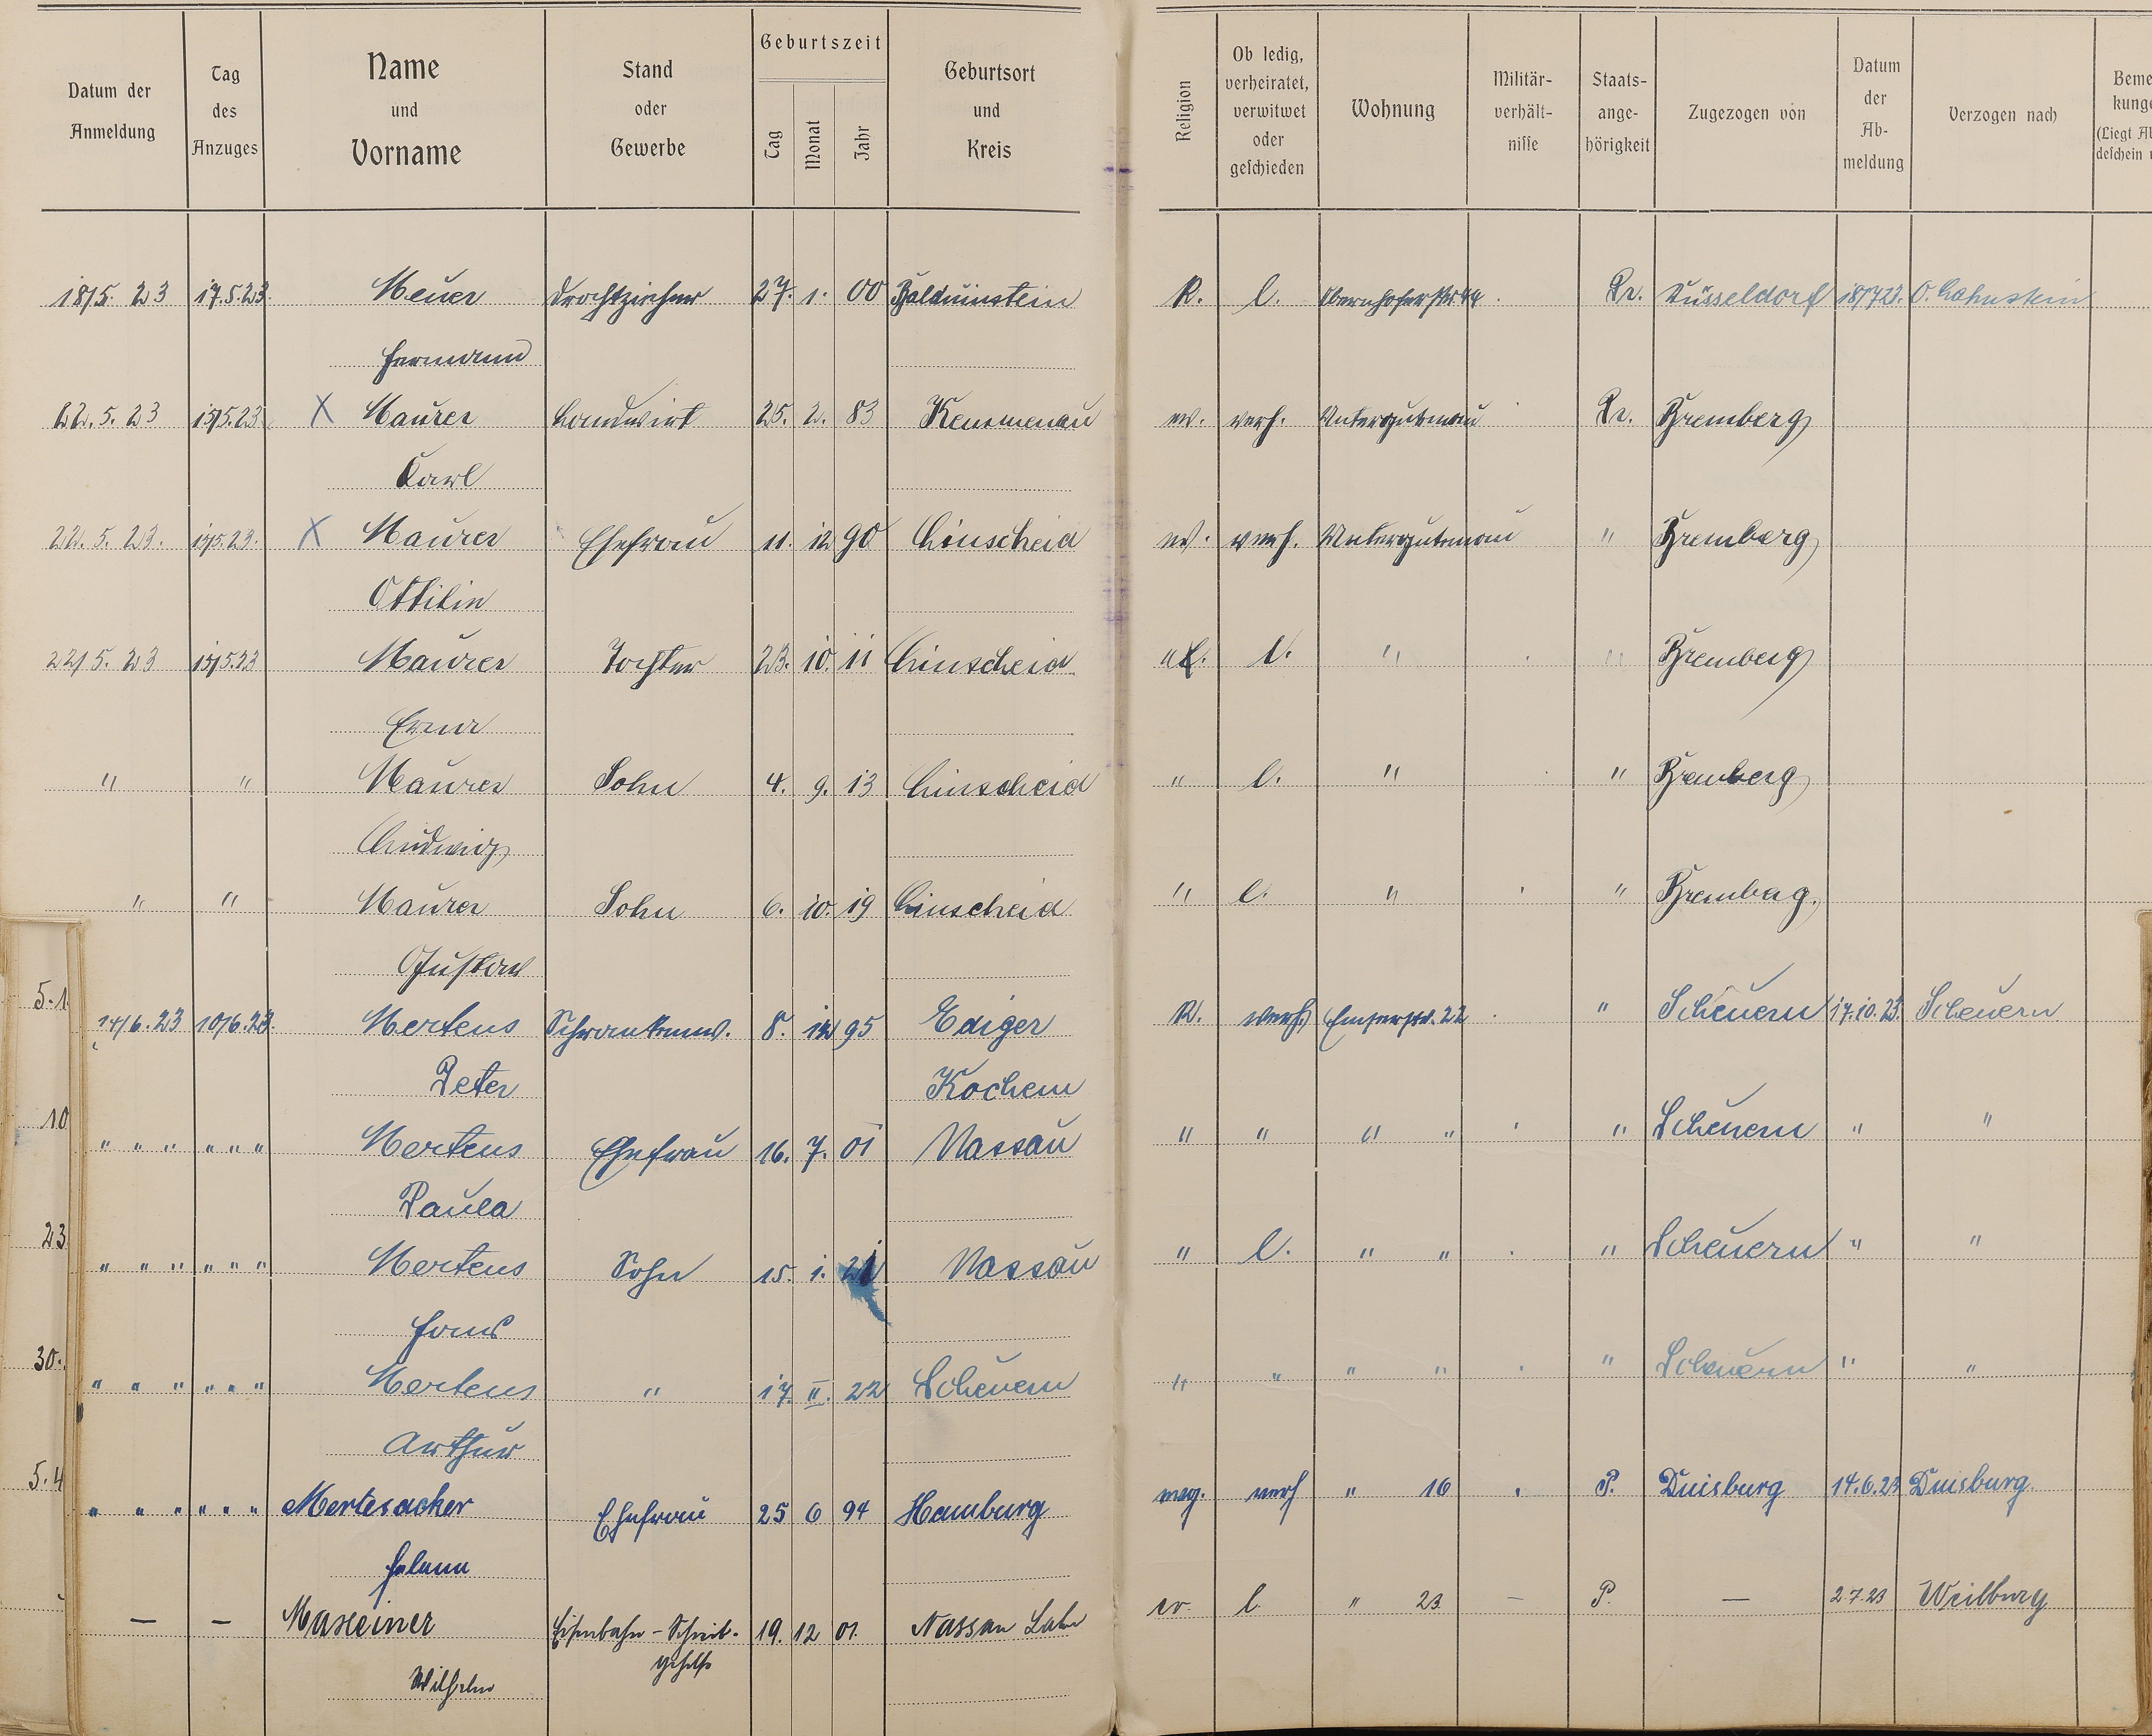 Datum der Anmeldung | Tag des Anzuges | Name und Vorname | Stand oder Gewerbe | Geburtszeit Tag Monat Jahr | Geburtsort und Kreis | Religion | Ob ledig, verheiratet, verwitwet oder geschieden | Wohnung | Militär-verhält-nisse | Staats-ange-hörigkeit | Zugezogen von | Datum der Ab-meldung | Verzogen nach | Beme kunge (Liegt Ab deschein
18/5. 23 17.5.23. Meuer Drahtzieher 27. 1. 00 Balduinstein R. l. Obernhoferstr. 44 Pr. Düsseldorf 18/7 23. O. Lahnstein
Hermann
22. 5. 23 15/5.23 X Maurer Landwirt 25. 2. 83 Kemmenau ev. verh. Untergutenau Pr. Bremberg
Karl
22. 5. 23. 15/5.23. X Maurer Ehefrau 11. 12 90 Linscheid ev. verh. Untergutenau " Bremberg
Ottilie
22/5. 23 15/5.23 Maurer Tochter 23. 10. 11 Linscheid " l. " " Bremberg
Erna
" " Maurer Sohn 4. 9. 13 Linscheid " l. " " Bremberg
Ludwig
" " Maurer Sohn 6. 10. 19 Linscheid " l. " " Bremberg.
Gustav
5.1.
14/6. 23 10/6.23. Mertens 8. 12 95 Ediger R. verh. Emserstr. 22 " Scheuern 17.10.23. Scheuern
Peter Kochem
10
" " " " " " Mertens Ehefrau 16. 7. 01 Nassau " " " " " Scheuern " "
Paula
23
" " " " " " Mertens Sohn 15. 1. 21 Nassau " l. " " " Scheuern " "
Hans
30.
" " " " " " Mertens " 17. II. 22 Scheuern " " " " " Scheuern " "
Arthur
5.4
" " " " " " Mertesacker Ehefrau 25 6 94 Hamburg evg. verh " 16 P. Duisburg 14.6.23 Duisburg.
Helene
— — Maxeiner Eisenbahn-Schreib- 19. 12 01. Nassau Lahn ev. l " 23 — P. — 2.7.23 Weilburg
gehilfe
Wilhelm